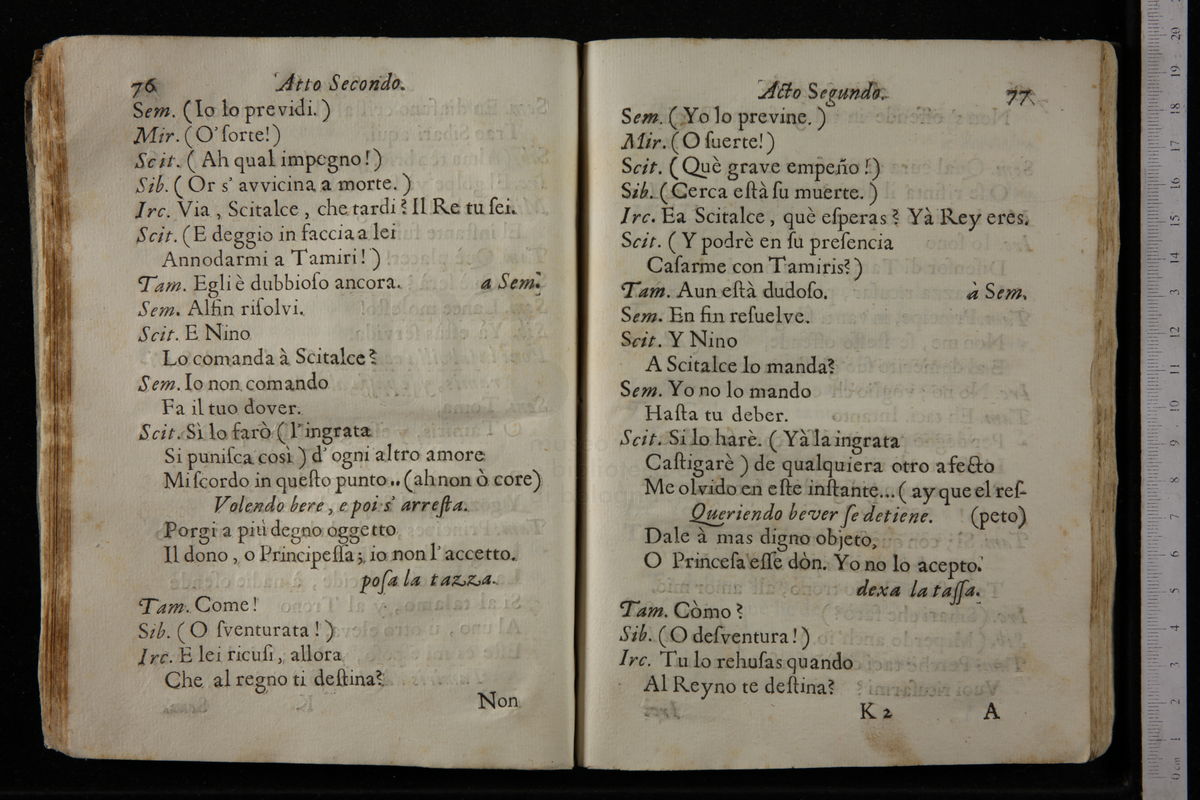 76 Atto Secondo.
Sem. (Io lo previdi.)
Mir. (O' ſorte!)
Scit. (Ah qual impegno!)
Sib. (Or s' avvicina a morte.)
Irc. Via, Scitalce, che tardi? Il Re tu ſei.
Scit. (E deggio in faccia a lei
Annodarmi a Tamiri!)
Tam. Egli è dubbioſo ancora. a Sem.
Sem. Alfin riſolvi.
Scit. E Nino
Lo comanda à Scitalce?
Sem. Io non comando
Fa il tuo dover.
Scit. Sì lo farò (l'ingrata
Si puniſca così) d' ogni altro amore
Mi ſcordo in queſto punto.. (ah non ò core)
Volendo bere, e poi s' arreſta.
Porgi a più degno oggetto
Il dono, o Principeſſa; io non l' accetto.
poſa la tazza.
Tam. Come!
Sib. (O ſventurata!)
Irc. E lei ricuſi, allora
Che al regno ti deſtina?
Non
Acto Segundo. 77
Sem. (Yo lo previne.)
Mir. (O ſuerte!)
Scit. (Què grave empeño!)
Sib. (Cerca eſtà ſu muerte.)
Irc. Ea Scitalce, què eſperas? Yà Rey eres.
Scit. (Y podrè en ſu preſencia
Caſarme con Tamiris?)
Tam. Aun eſtà dudoſo. à Sem.
Sem. En fin reſuelve.
Scit. Y Nino
A Scitalce lo manda?
Sem. Yo no lo mando
Haſta tu deber.
Scit. Si lo harè. (Yà la ingrata
Caſtigarè) de qualquiera otro afecto
Me olvido en eſte inſtante... (ay que el reſ-
Queriendo bever ſe detiene. (peto)
Dale à mas digno objeto,
O Princeſa eſſe dòn. Yo no lo acepto.
dexa la taſſa.
Tam. Còmo?
Sib. (O deſventura!)
Irc. Tu lo rehuſas quando
Al Reyno te deſtina?
K 2 A